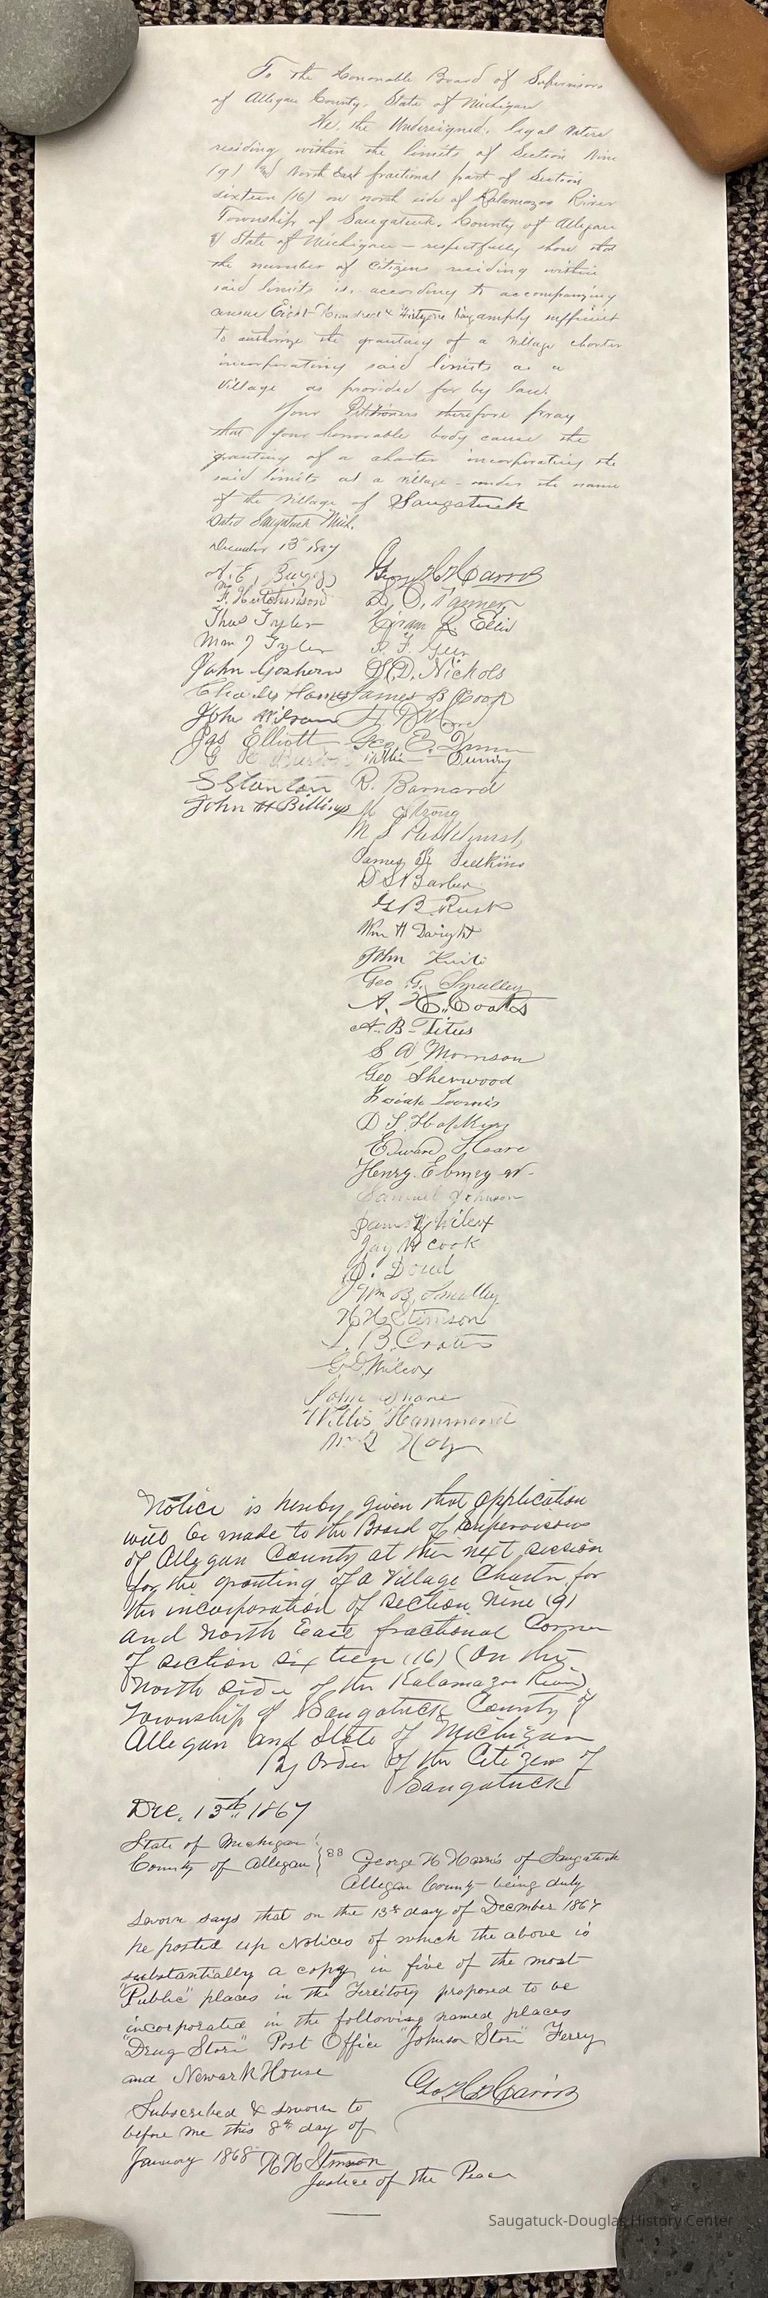 To the Honorable Board of Supervisors
of Allegan County, State of Michigan
We, the Undersigned, legal voters
residing within the limits of Section Nine
(9) and North East fractional part of Section
sixteen (16) on north side of Kalamazoo River
Township of Saugatuck, County of Allegan
& State of Michigan – respectfully show that
the number of citizens residing within
said limits is, according to accompanying
census Eight Hundred & thirtyone being amply sufficient
to authorize the granting of a village charter
incorporating said limits as a
Village as provided for by law.
Your Petitioners therefore pray
that your honorable body cause the
granting of a charter incorporating the
said limits as a village – under the name
of the Village of Saugatuck
Dated Saugatuck Mich.
December 13th 1867
A. E.
Geo H Harris
Hutchinson
Thos Tyler
Hiram R Ellis
Wm J Tyler
John Goshorn
D. Nichols
Charles Hames
James B Coop
John Wilson
Jas Elliott
Geo E. Dunn
S Stanton
R. Barnard
John H Billings
M Strong
M S Parkhurst
James Judkins
D S Barber
G B Rusk
Wm H Dwight
John
Geo G. Smalley
A. H. Coates
A. B. Titus
S A Morrison
Geo Sherwood
Isaiah Loomis
D S Hopkins
Edward Hoare
Henry Ebmeyer
Samuel Johnson
James Wilcox
Jay W Cook
Doud
Wm B. Smalley
H H Stimson
L. B. Coates
G D Wilcox
John Shane
Willis Hammond
Notice is hereby given that application
will be made to the Board of Supervisors
of Allegan County at their next session
for the granting of a Village Charter for
the incorporation of section nine (9)
and North East fractional Corner
of section sixteen (16) (on the
North side of the Kalamazoo River)
Township of Saugatuck County of
Allegan and State of Michigan
By Order of the Citizens of
Saugatuck
Dec, 13th, 1867
State of Michigan
County of Allegan } SS George H Harris of Saugatuck
Allegan County being duly
sworn says that on the 13th day of December 1867
he posted up Notices of which the above is
substantially a copy, in five of the most
"Public" places in the Territory proposed to be
incorporated in the following named places
"Drug Store" Post Office "Johnson Store" Ferry
and Newark House
Geo H Harris
Subscribed & sworn to
before me this 8th day of
January 1868 H H Stimson
Justice of the Peace
Saugatuck-Douglas History Center